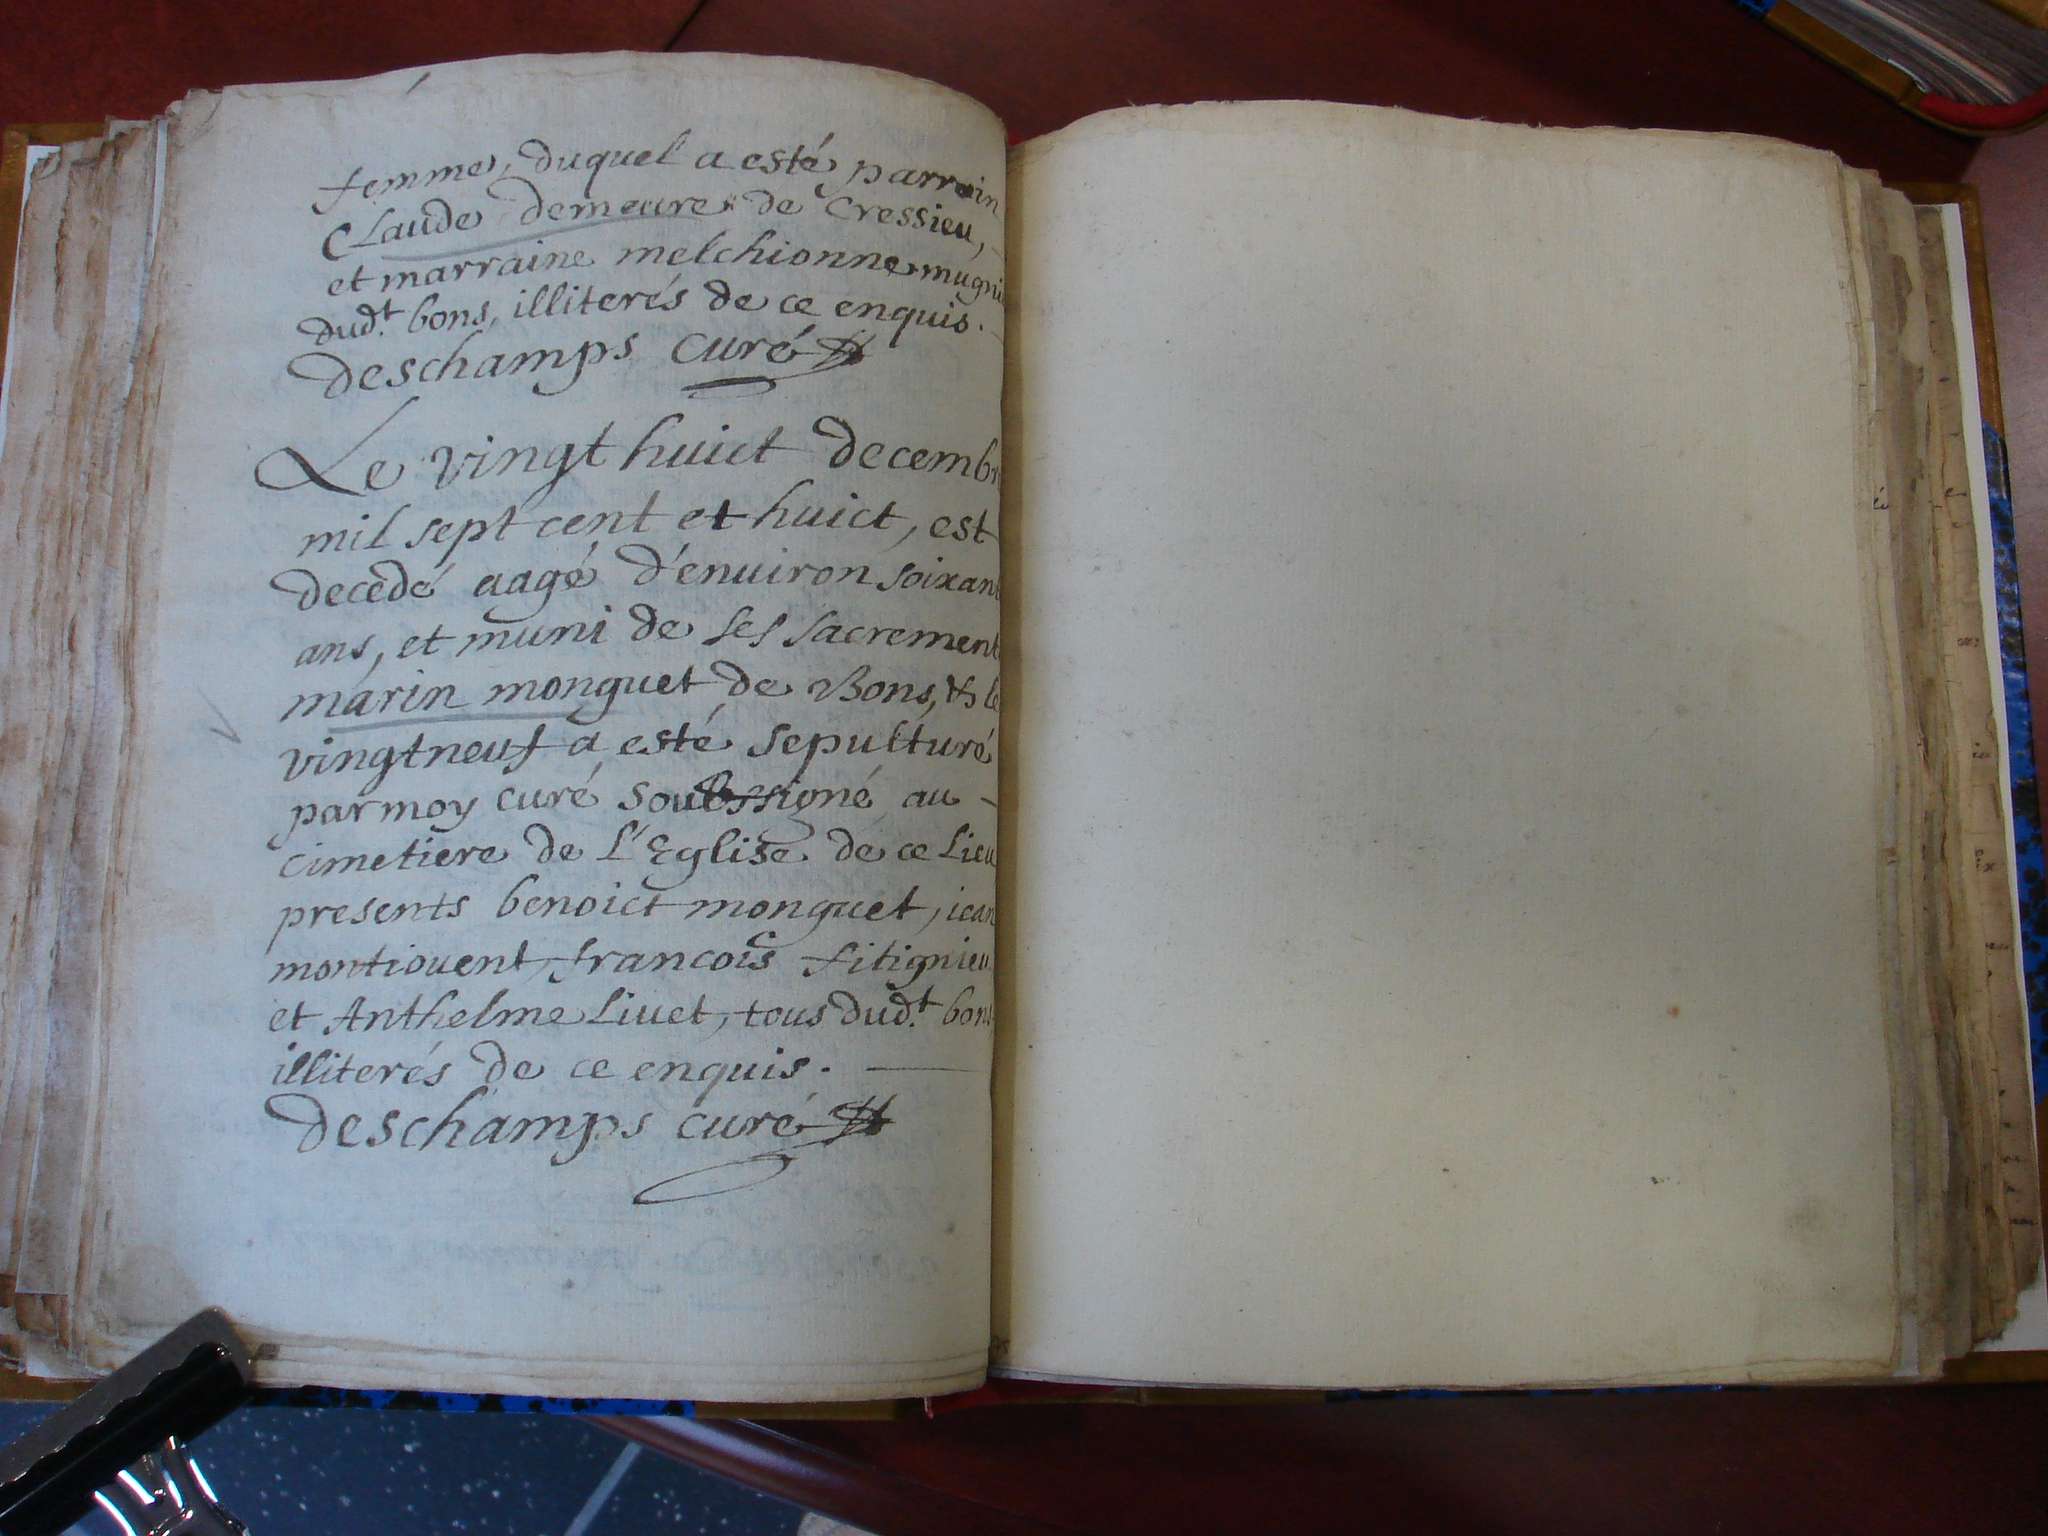 femme, duquel a esté parrain
Claude demeure de Cressieu,
et marraine melchionne mugni
dud.t bons, illiterés de ce enquis.
deschamps curé
Le vingt huict decembre
mil sept cent et huict, est
decedé aagé d'enuiron soixant
ans, et muni de ses sacrement
marin monguet de Bons, & le
vingtneuf a esté sepulturé
par moy curé soubssigné au
cimetiere de l'Eglise de ce lieu
presents benoict monguet, iean
montiouent, francois fitignieu
et Anthelme Liuet, tous dud.t bons
illiterés de ce enquis.
deschamps curé